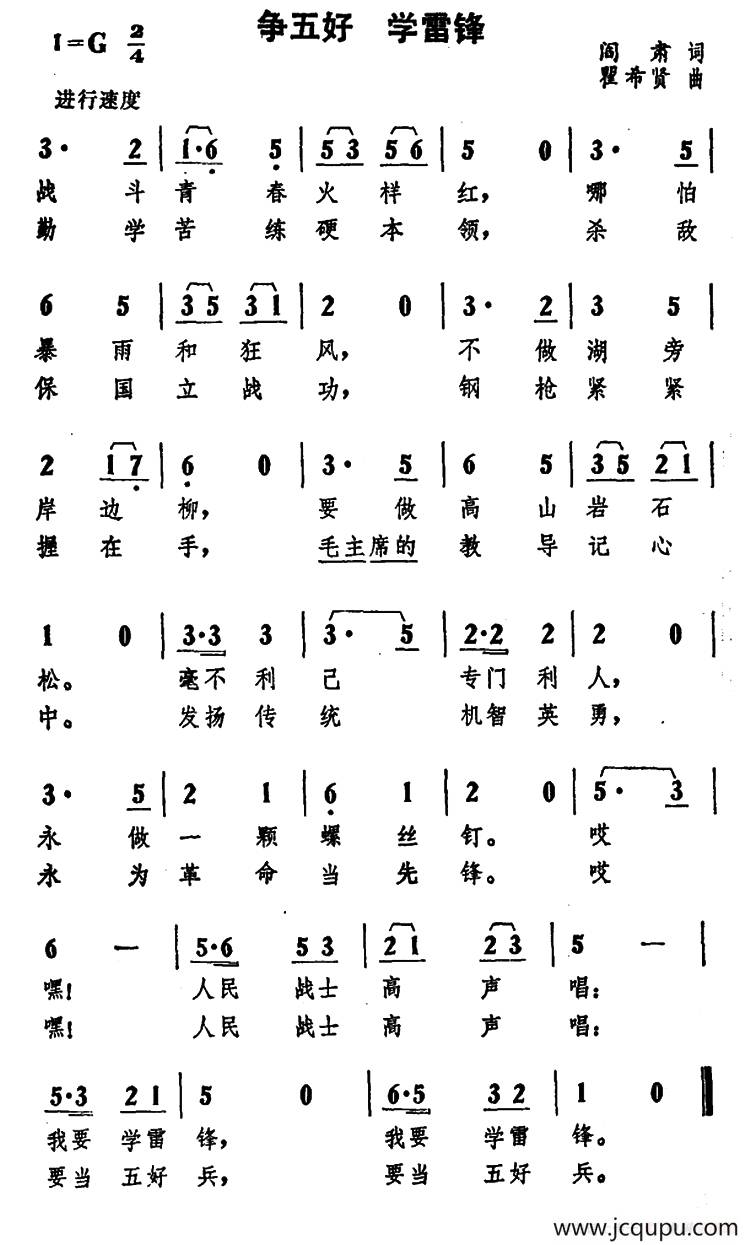 争五好 学雷锋
1=G 2/4
阎肃 词
瞿希贤 曲
进行速度
3· 2 | 1·6 5 | 5 3 5 6 | 5 0 | 3· 5 |
战 斗 青 春 火 样 红, 哪 怕
勤 学 苦 练 硬 本 领, 杀 敌
6 5 | 3 5 3 1 | 2 0 | 3· 2 | 3 5 |
暴 雨 和 狂 风, 不 做 湖 旁
保 国 立 战 功, 钢 枪 紧 紧
2 1 7 | 6 0 | 3· 5 | 6 5 | 3 5 2 1 |
岸 边 柳, 要 做 高 山 岩 石
握 在 手, 毛主席的 教 导 记 心
1 0 | 3·3 3 | 3· 5 | 2·2 2 | 2 0 |
松。 毫不利 己 专门利 人,
中。 发扬传 统 机智英 勇,
3· 5 | 2 1 | 6 1 | 2 0 | 5· 3 |
永 做 一 颗 螺 丝 钉。 哎
永 为 革 命 当 先 锋。 哎
6 — | 5·6 5 3 | 2 1 2 3 | 5 — |
嘿! 人民 战士 高 声 唱:
嘿! 人民 战士 高 声 唱:
5·3 2 1 | 5 0 | 6·5 3 2 | 1 0 ‖
我要 学雷 锋, 我要 学雷 锋。
要当 五好 兵, 要当 五好 兵。
www.jcqupu.com